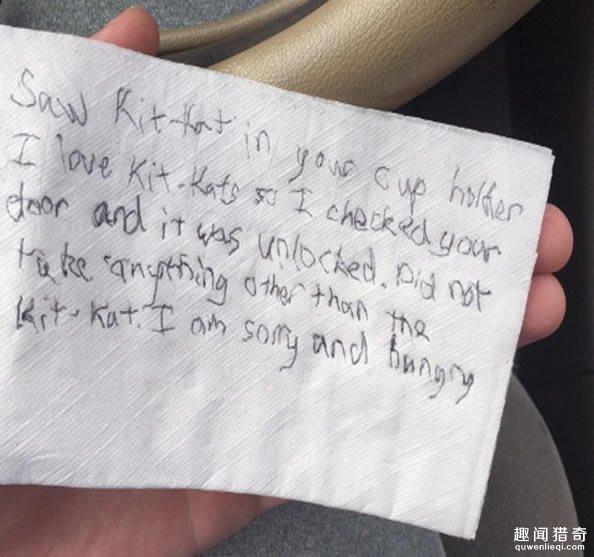 Saw Kit-Kat in your cup holder
I love Kit-Kats so I checked your
door and it was unlocked. Did not
take anything other than the
Kit-Kat. I am sorry and hungry
趣闻猎奇
quwenlieqi.com